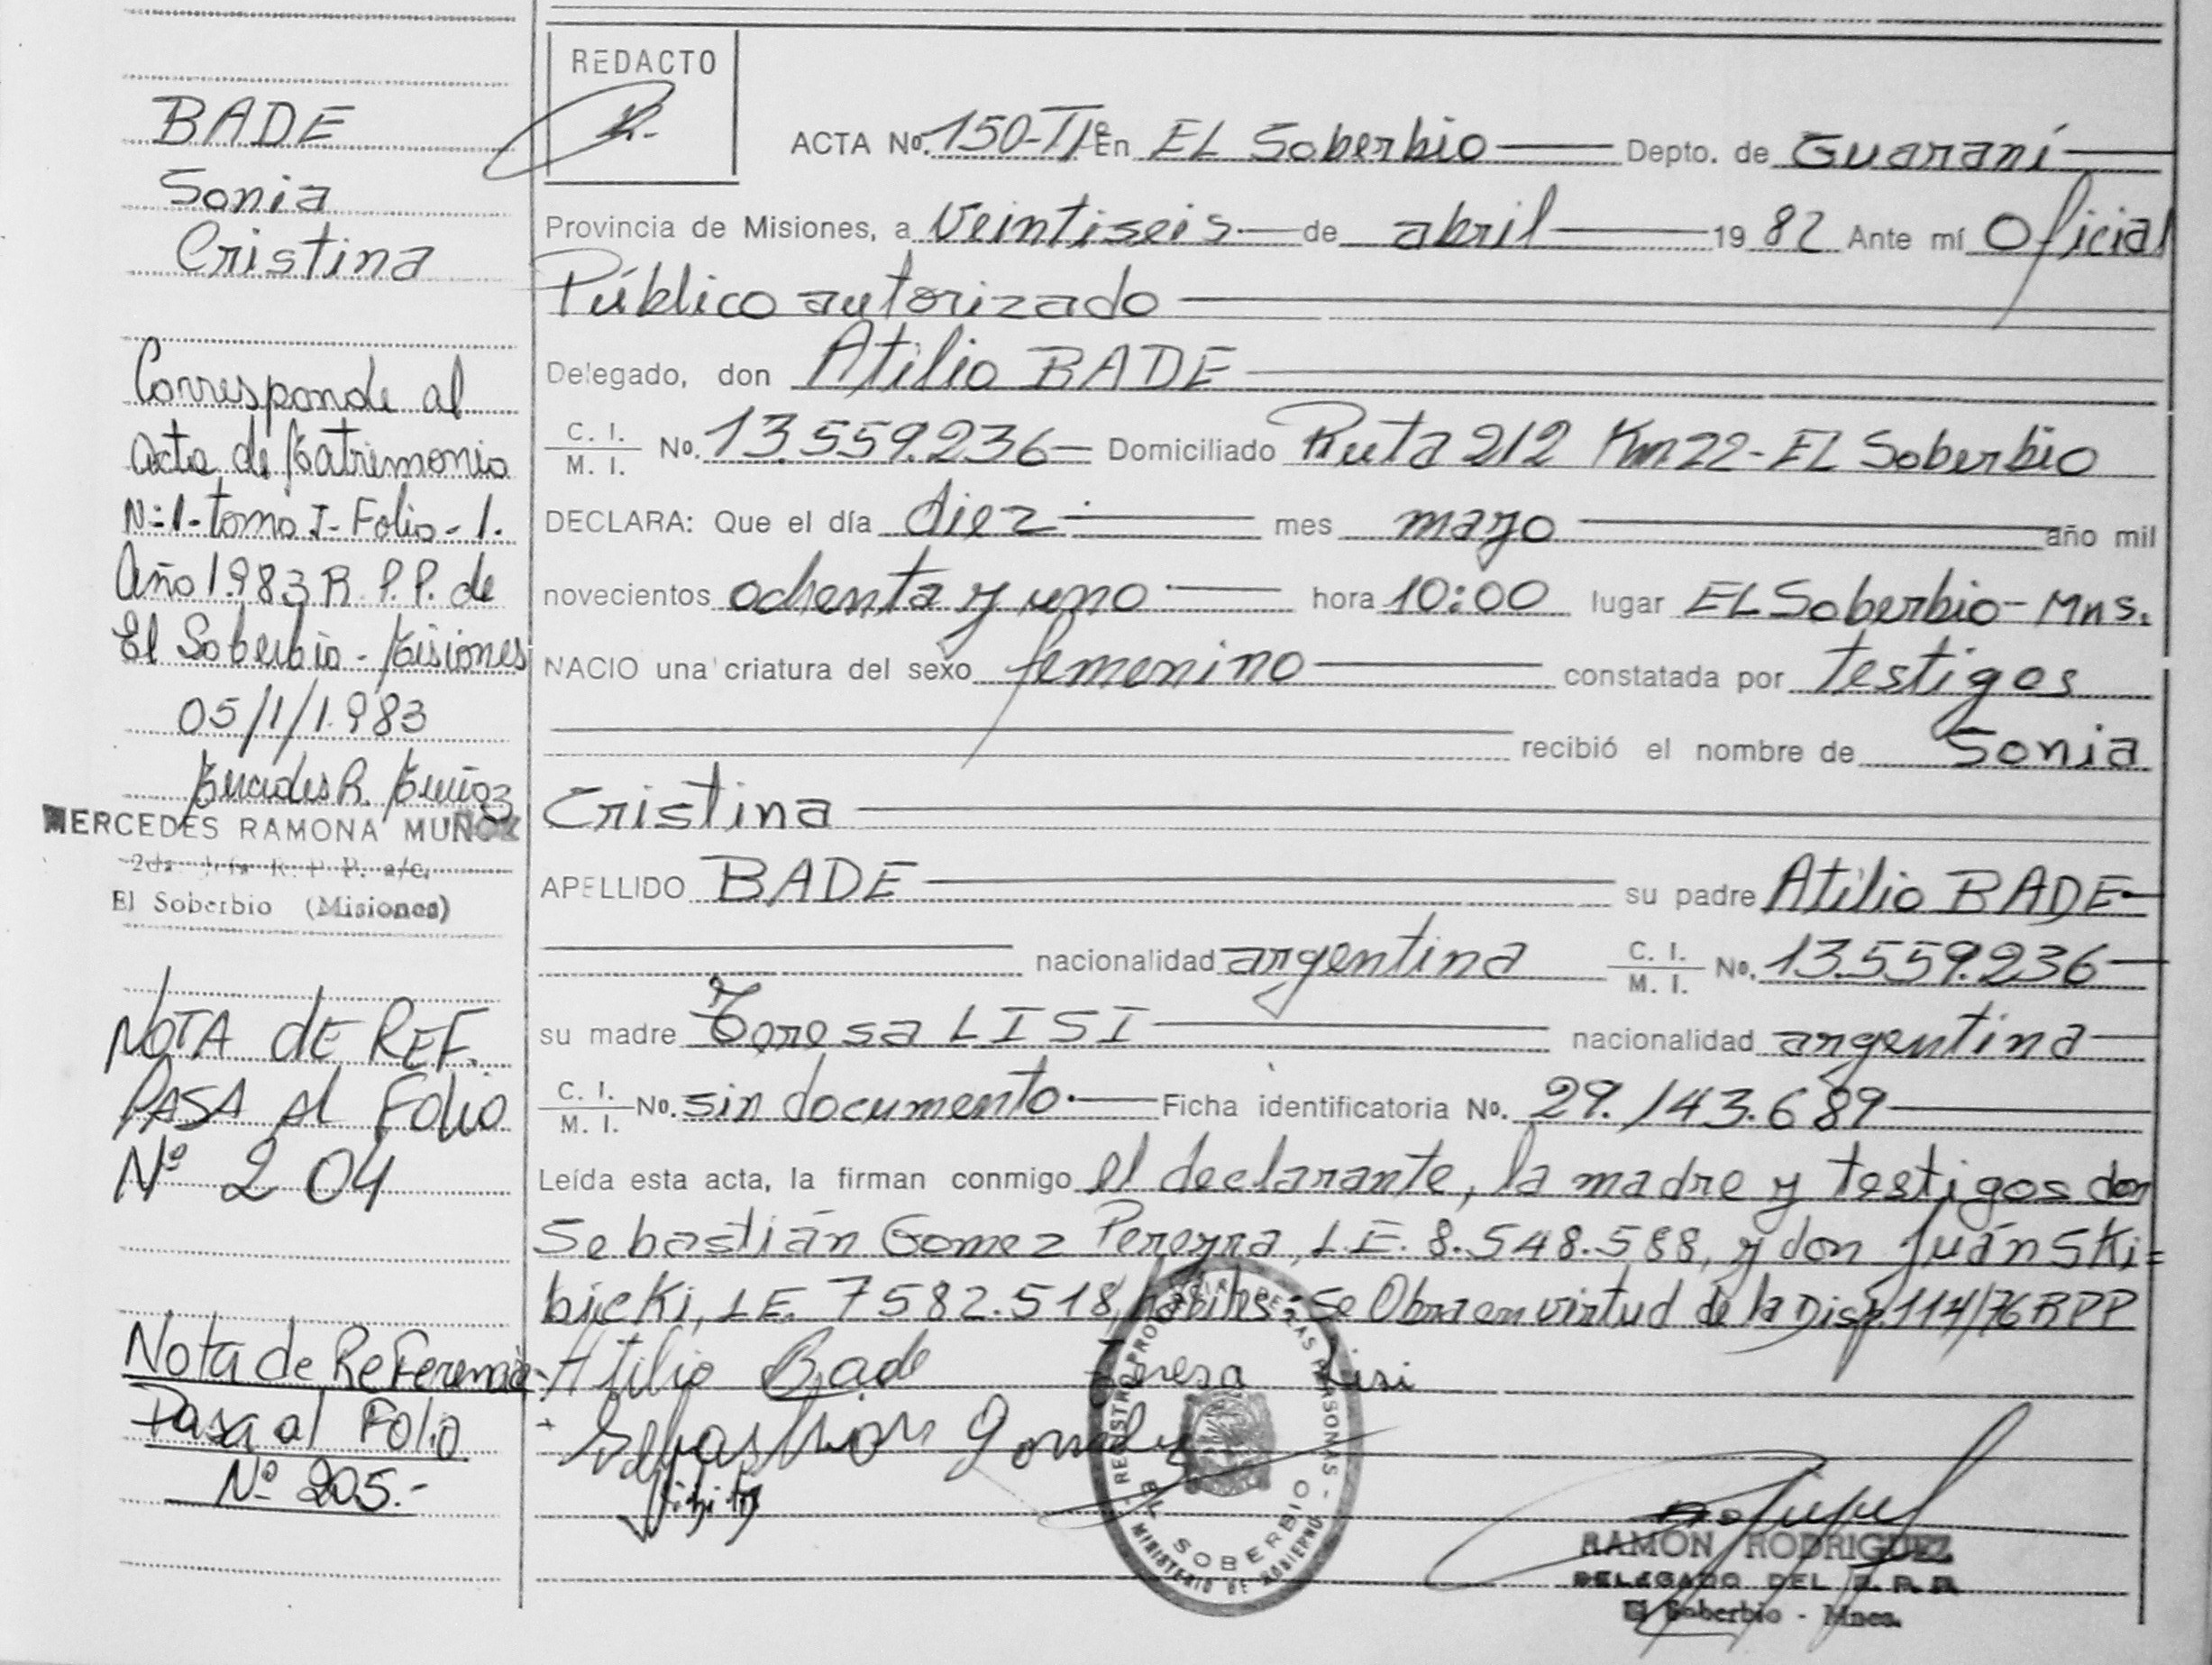 BADE
Sonia
Cristina
Corresponde al
Acta de Matrimonio
Nº 1- tomo I- Folio - 1.
Año 1.983 R. P.P. de
El Soberbio - Misiones
05/1/1.983
Mercedes R. Muñoz
MERCEDES RAMONA MUÑOZ
2da. Jefa R. P. P. a/c.
El Soberbio (Misiones)
NOTA dE REF.
PASA Al Folio
Nº 204
Nota de Referencia
Pasa al Folio
Nº 205.-
REDACTO
ACTA No. 150-Tº En EL Soberbio Depto. de Guaraní
Provincia de Misiones, a Veintiseis de abril 19 82 Ante mí Oficial
Público autorizado
Delegado, don Atilio BADE
C. I. / M. I. No. 13.559.236 Domiciliado Ruta 212 Km 22 - EL Soberbio
DECLARA: Que el día diez mes mayo año mil
novecientos ochenta y uno hora 10:00 lugar EL Soberbio - Mns.
NACIO una criatura del sexo femenino constatada por testigos
recibió el nombre de Sonia
Cristina
APELLIDO BADE su padre Atilio BADE
nacionalidad argentina C. I. / M. I. No. 13.559.236
su madre Teresa LISI nacionalidad argentina
C. I. / M. I. No. sin documento. Ficha identificatoria No. 29.143.689
Leída esta acta, la firman conmigo el declarante, la madre y testigos don
Sebastián Gomez Pereyra, L.E. 8.548.588, y don Juán Ski=
bicki, L.E. 7582.518, hábiles - Se Obra en virtud de la Disp. 114/76 RPP
Atilio Bade Teresa Lisi
Sebastian Gomez
REGISTRO PROVINCIAL DE LAS PERSONAS
EL SOBERBIO
MINISTERIO DE GOBIERNO
RAMON RODRIGUEZ
DELEGADO DEL R. P. P.
El Soberbio - Mnes.